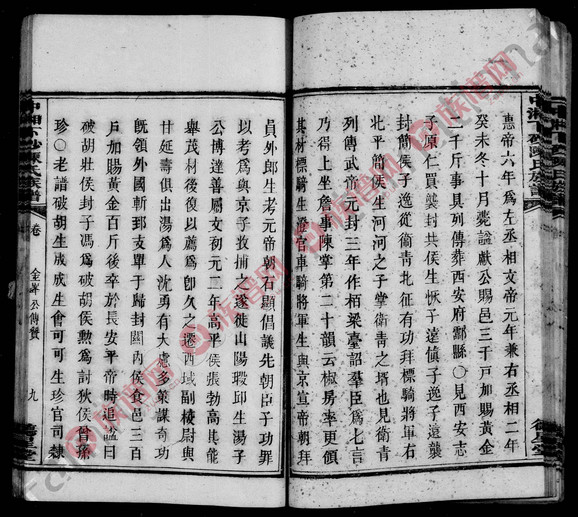 惠帝六年為左丞相文帝元年兼右丞相二年
癸未冬十月薨諡獻公賜邑三千戸加賜黃金
二千斤事具列傳葬西安府鄠縣〇見西安志
子原仁買襲封共侯生恢子遠慎子逸子遠襲
封簡侯子逸從衞青北征有功拜標騎將軍右
北平簡侯生河河之子堂衞青之壻也見衞青
列傳武帝元封三年作栢梁臺詔羣臣爲七言
乃得上坐詹事陳掌第二十韻云椒房率更領
其材標騎生澄官車騎將軍生與京宣帝朝拜
員外郎生考元帝朝石顯倡議先朝臣子功罪
以考爲與京子敎捕之遂徙山陽瑕邱生湯子
公博達善屬文初元二年高平侯張勃高其能
舉茂材後復以薦為郎久之遷西域副校尉與
甘延壽俱出湯爲人沈勇有大慮多策謀奇功
旣領外國斬郅支單于歸封關內侯食邑三百
戸加賜黃金百斤後卒於長安平帝時追諡曰
破胡壯侯封子馮爲破胡侯勲爲討狄侯曾孫
珍〇老譜破胡生成成生會可可生珍官司隸
中湘下砂陳氏族譜
卷
金峯公傳贊
九
德星堂
族譜网